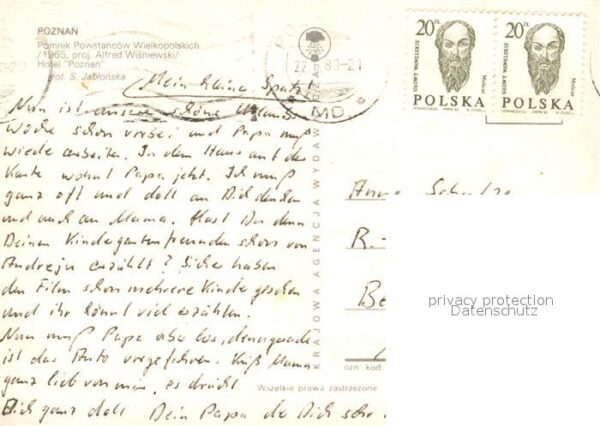 POZNAŃ
Pomnik Powstańców Wielkopolskich
/1965, proj. Alfred Wiśniewski/
Hotel "Poznań"
fot. S. Jabłońska
Mein kleiner Spatz!
Nun ist unsere schöne Urlaubs-
woche schon vorbei und Papa muß
wieder arbeiten. In dem Haus auf der
Karte wohnt Papa jetzt. Ich muß
ganz oft und doll an Dich denken
und auch an Mama. Hast Du denn
Deinen Kindergartenfreunden schon von
erzählt? Sicher haben
den Film schon mehrere Kinder gesehen
und ihr könnt viel erzählen.
Nun muß Papa aber los, denn gerade
ist das Auto vorgefahren. Küß Mama
ganz lieb von mir, es drückt
Dich ganz doll Dein Papa der Dich sehr
27. 8.89-21
MD
KRAJOWA AGENCJA WYDAW
20 ZŁ
GŁOWY WAWELSKIE
POLSKA
20 ZŁ
GŁOWY WAWELSKIE
POLSKA
R.-
Be
ozn. kod
Wszelkie prawa zastrzeżone
privacy protection
Datenschutz